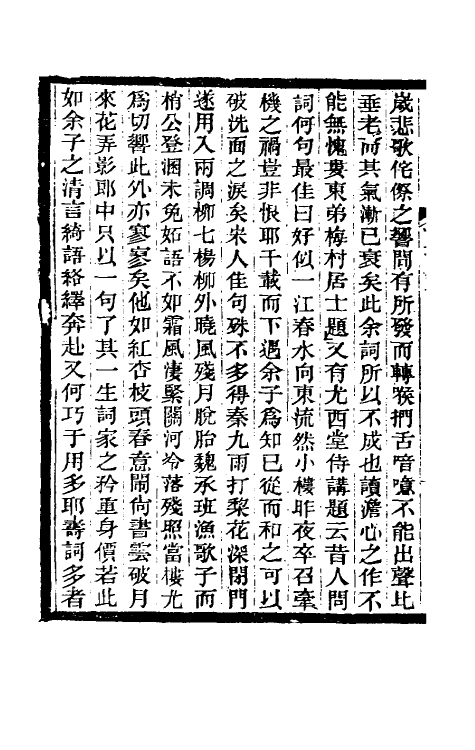 歲悲歌侘傺之響間有所發而轉喉捫舌喑噫不能出聲比
垂老而其氣漸已衰矣此余詞所以不成也讀澹心之作不
能無愧婁東弟梅村居士題又有尤西堂侍講題云昔人問
詞何句最佳曰好似一江春水向東流然小樓昨夜卒召牽
機之禍豈非恨耶千載而下遇余子為知已從而和之可以
破洗面之淚矣宋人佳句殊不多得秦九雨打梨花深閉門
遂用入兩調柳七楊柳外曉風殘月脫胎魏承班漁歌子而
梢公登溷未免如語不如霜風淒緊關河冷落殘照當樓尤
為切響此外亦寥寥矣他如紅杏枝頭春意鬧尚書雲破月
來花弄影郎中只以一句了其一生詞家之矜重身價若此
如余子之清言綺語絡繹奔赴又何巧于用多耶壽詞多者